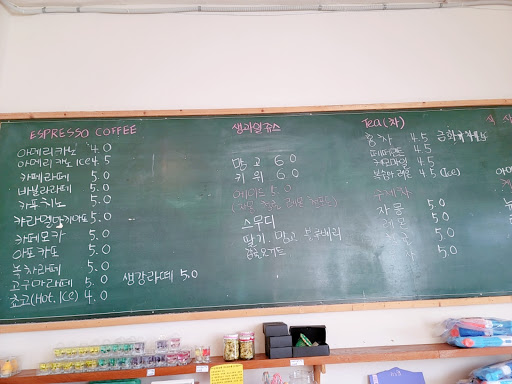 ESPRESSO COFFEE
아메리카노 4.0
아메리카노 ICE 4.5
카페라떼 5.0
바닐라라떼 5.0
카푸치노 5.0
캬라멜마키아또 5.0
카페모카 5.0
아포카토 5.0
녹차라떼 5.0
고구마라떼 5.0
생강라떼 5.0
쵸코(Hot. ICE) 4.0
생과일쥬스
망고 6.0
키위 6.0
에이드 5.0
스무디
딸기. 망고 블루베리
Tea(차)
홍차 4.5
페퍼민트 4.5
캐모마일 4.5
4.5 (Ice)
수제차
자몽 5.0
레몬 5.0
5.0
5.0